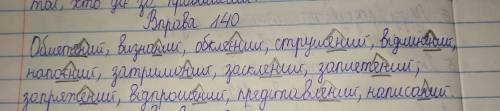 Вправа 140
Обметений, визнаний, обклеєний, струшений, відмінений,
напоєний, затриманий, засклений, заплетений,
запряжений, відпрошений, представлений, написаний.